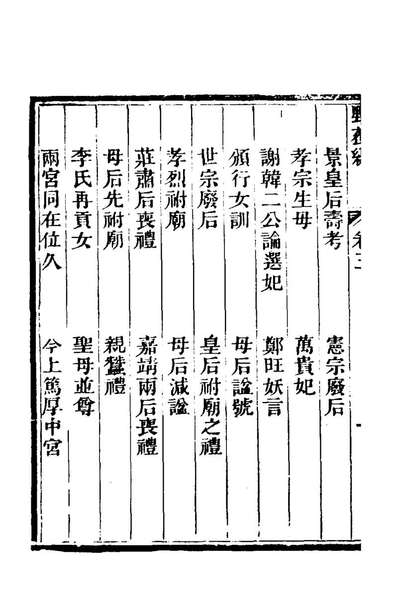 野獲編 卷三 一
景皇后壽考 憲宗廢后
孝宗生母 萬貴妃
謝韓二公論選妃 鄭旺妖言
頒行女訓 母后謚號
世宗廢后 皇后祔廟之禮
孝烈祔廟 母后減謚
莊肅后喪禮 嘉靖兩后喪禮
母后先祔廟 親蠶禮
李氏再貢女 聖母並尊
兩宮同在位久 今上篤厚中宮